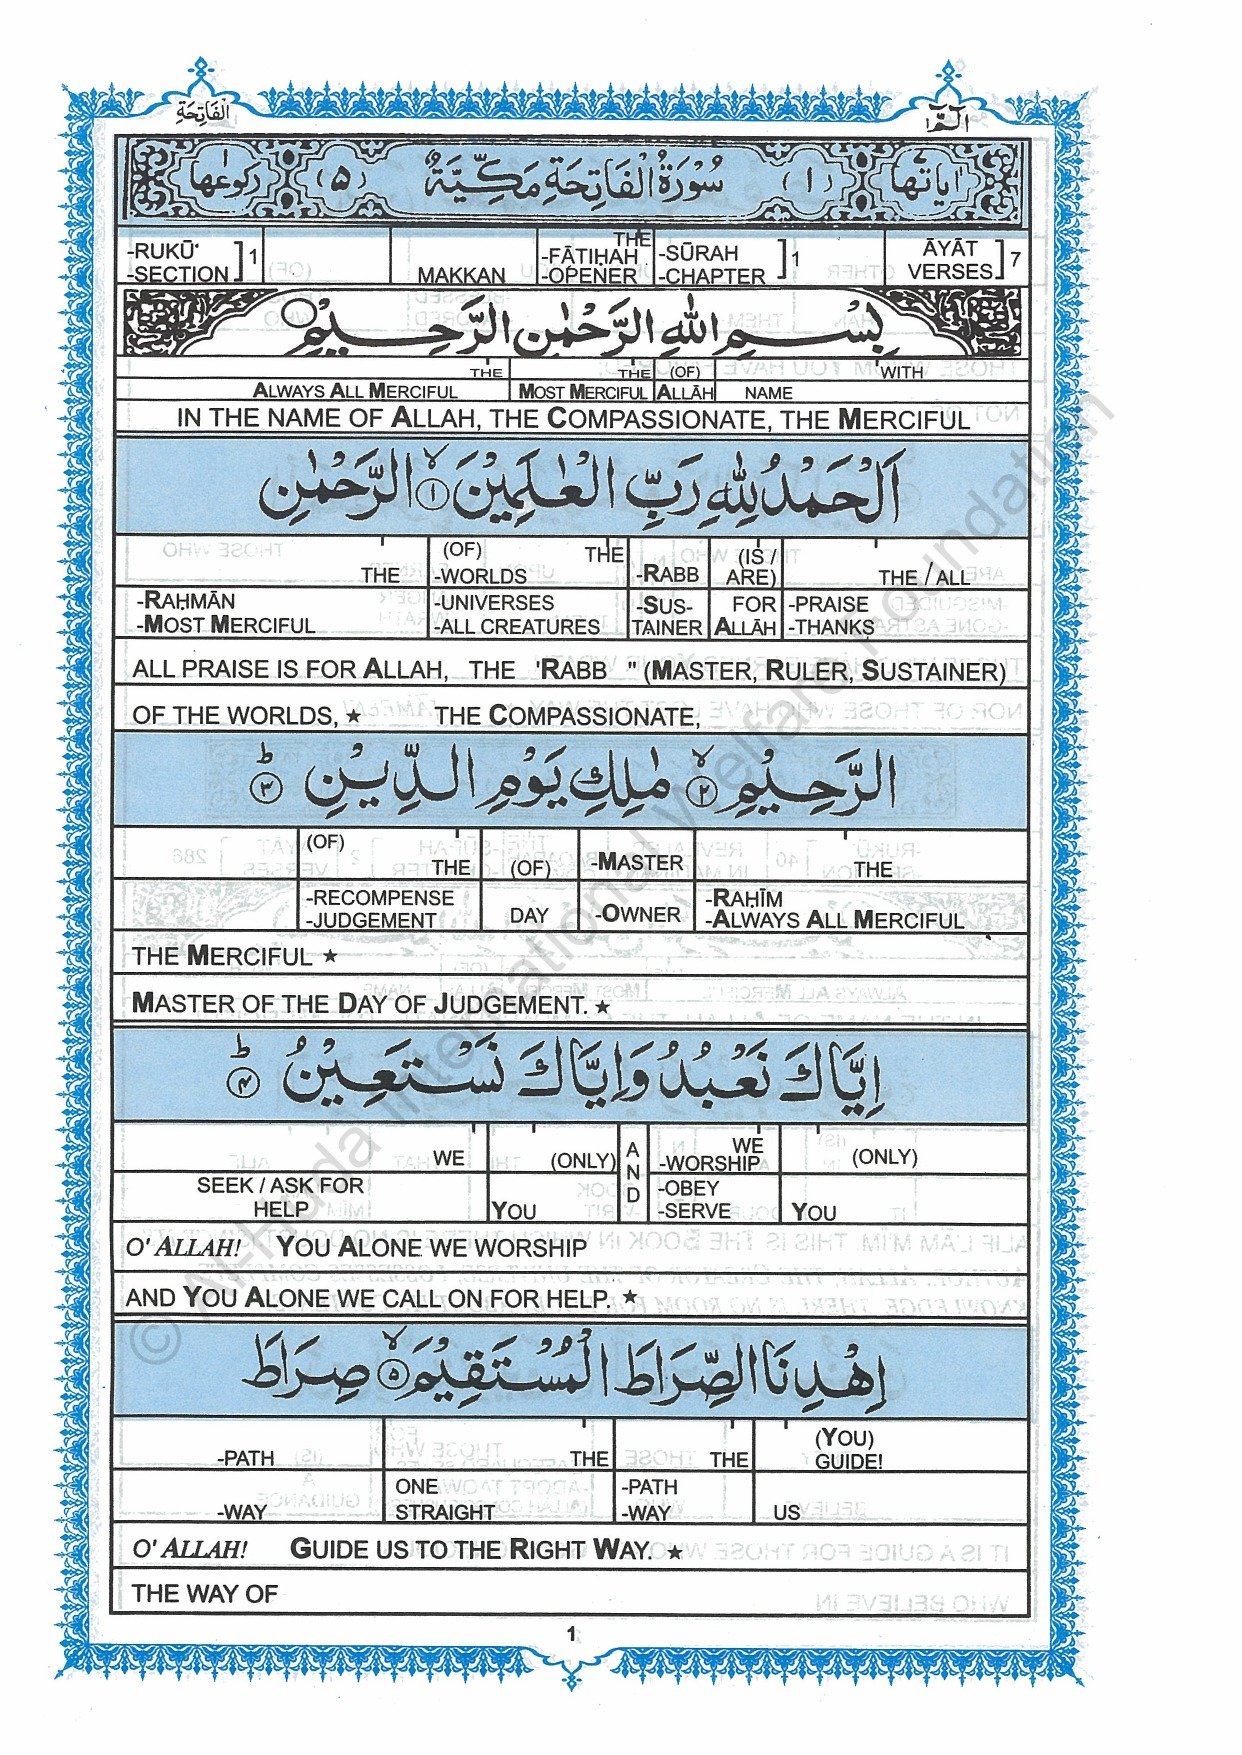 الفَاتِحَة
الٓمّٓ ١
اٰیاتها ٧ (١) سُوْرَةُ الْفَاتِحَةِ مَكِّيَّةٌ (٥) رکوعها ١
THE
-RUKŪ' ] 1 -FĀTIḤAH -SŪRAH ] 1 ĀYĀT ] 7
-SECTION MAKKAN -OPENER -CHAPTER VERSES
بِسْمِ اللهِ الرَّحْمٰنِ الرَّحِيْمِ
THE THE (OF) WITH
ALWAYS ALL MERCIFUL MOST MERCIFUL ALLĀH NAME
IN THE NAME OF ALLAH, THE COMPASSIONATE, THE MERCIFUL
اَلْحَمْدُ لِلّٰهِ رَبِّ الْعٰلَمِيْنَ ۙ﴿١﴾ الرَّحْمٰنِ
(OF) THE (IS /
THE -WORLDS -RABB ARE) THE / ALL
-RAḤMĀN -UNIVERSES -SUS- FOR -PRAISE
-MOST MERCIFUL -ALL CREATURES TAINER ALLĀH -THANKS
ALL PRAISE IS FOR ALLAH, THE 'RABB " (MASTER, RULER, SUSTAINER)
OF THE WORLDS, ★ THE COMPASSIONATE,
الرَّحِيْمِ ۙ﴿٢﴾ مٰلِكِ يَوْمِ الدِّيْنِ ؕ﴿٣﴾
(OF) THE (OF) -MASTER THE
-RECOMPENSE -RAḤĪM
-JUDGEMENT DAY -OWNER -ALWAYS ALL MERCIFUL
THE MERCIFUL ★
MASTER OF THE DAY OF JUDGEMENT. ★
اِيَّاكَ نَعْبُدُ وَاِيَّاكَ نَسْتَعِيْنُ ؕ﴿٤﴾
WE (ONLY) AND WE (ONLY)
-WORSHIP
SEEK / ASK FOR -OBEY
HELP YOU -SERVE YOU
O' ALLAH! YOU ALONE WE WORSHIP
AND YOU ALONE WE CALL ON FOR HELP. ★
اِهْدِنَا الصِّرَاطَ الْمُسْتَقِيْمَ ۙ﴿٥﴾ صِرَاطَ
(YOU)
-PATH THE THE GUIDE!
ONE -PATH
-WAY STRAIGHT -WAY US
O' ALLAH! GUIDE US TO THE RIGHT WAY. ★
THE WAY OF
1
© Al-Huda International Welfare Foundation